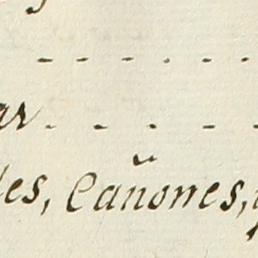 ar
es, Cañones,